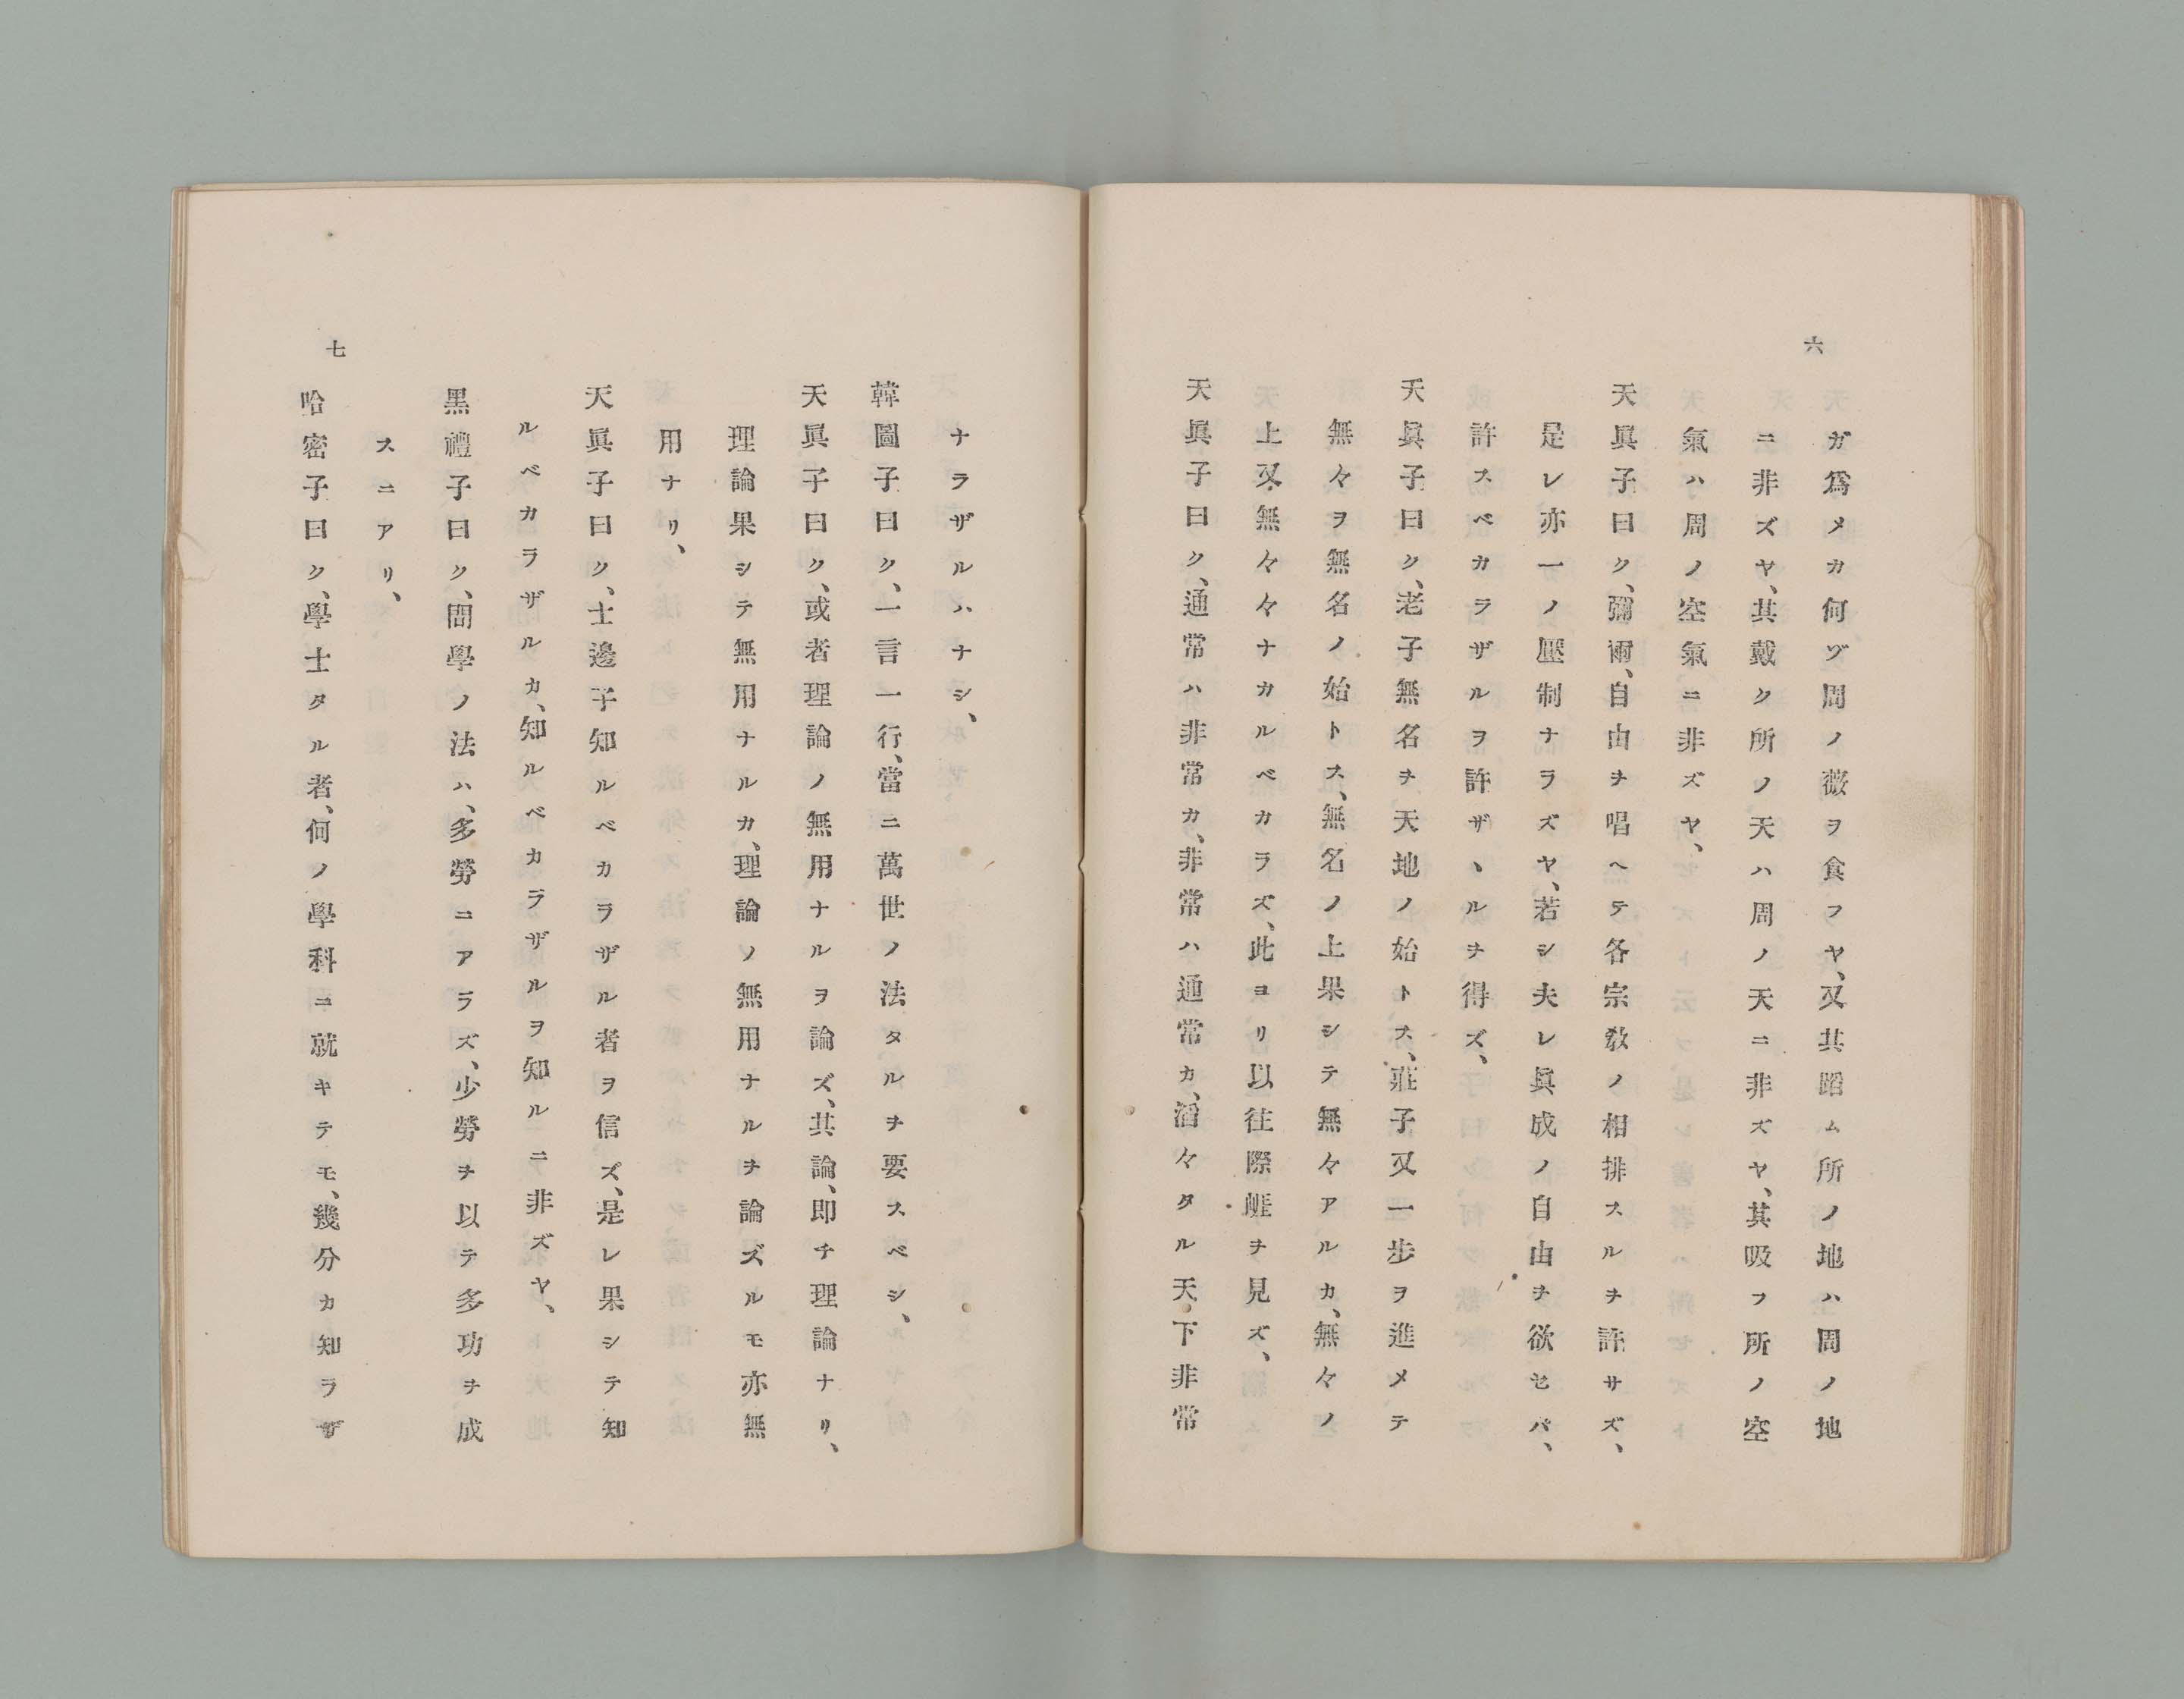 六
ガ爲メカ何ヅ周ノ薇ヲ食フヤ、又其蹈ム所ノ地ハ周ノ地
ニ非ズヤ、其戴ク所ノ天ハ周ノ天ニ非ズヤ、其吸フ所ノ空
氣ハ周ノ空氣ニ非ズヤ、
天眞子曰ク、彌爾、自由ヲ唱ヘテ各宗敎ノ相排スルヲ許サズ、
是レ亦一ノ壓制ナラズヤ、若シ夫レ眞成ノ自由ヲ欲セバ、
許スベカラザルヲ許ザヽルヲ得ズ、
天眞子曰ク、老子無名ヲ天地ノ始トス、莊子又一步ヲ進メテ
無々ヲ無名ノ始トス、無名ノ上果シテ無々アルカ、無々ノ
上又無々々ナカルベカラズ、此ヨリ以往際眭ヲ見ズ、
天眞子曰ク、通常ハ非常カ、非常ハ通常カ、滔々タル天下非常
ナラザルハナシ、
韓圖子曰ク、一言一行、當ニ萬世ノ法タルヲ要スベシ、
天眞子曰ク、或者理論ノ無用ナルヲ論ズ、其論、即チ理論ナリ、
理論果シテ無用ナルカ、理論ノ無用ナルヲ論ズルモ亦無
用ナリ、
天眞子曰ク、士邊子知ルベカラザル者ヲ信ズ、是レ果シテ知
ルベカラザルカ、知ルベカラザルヲ知ルニ非ズヤ、
黑禮子曰ク、問學ノ法ハ、多勞ニアラズ、少勞ヲ以テ多功ヲ成
スニアリ、
哈密子曰ク、學士タル者、何ノ學科ニ就キテモ、幾分カ知ラザ
七